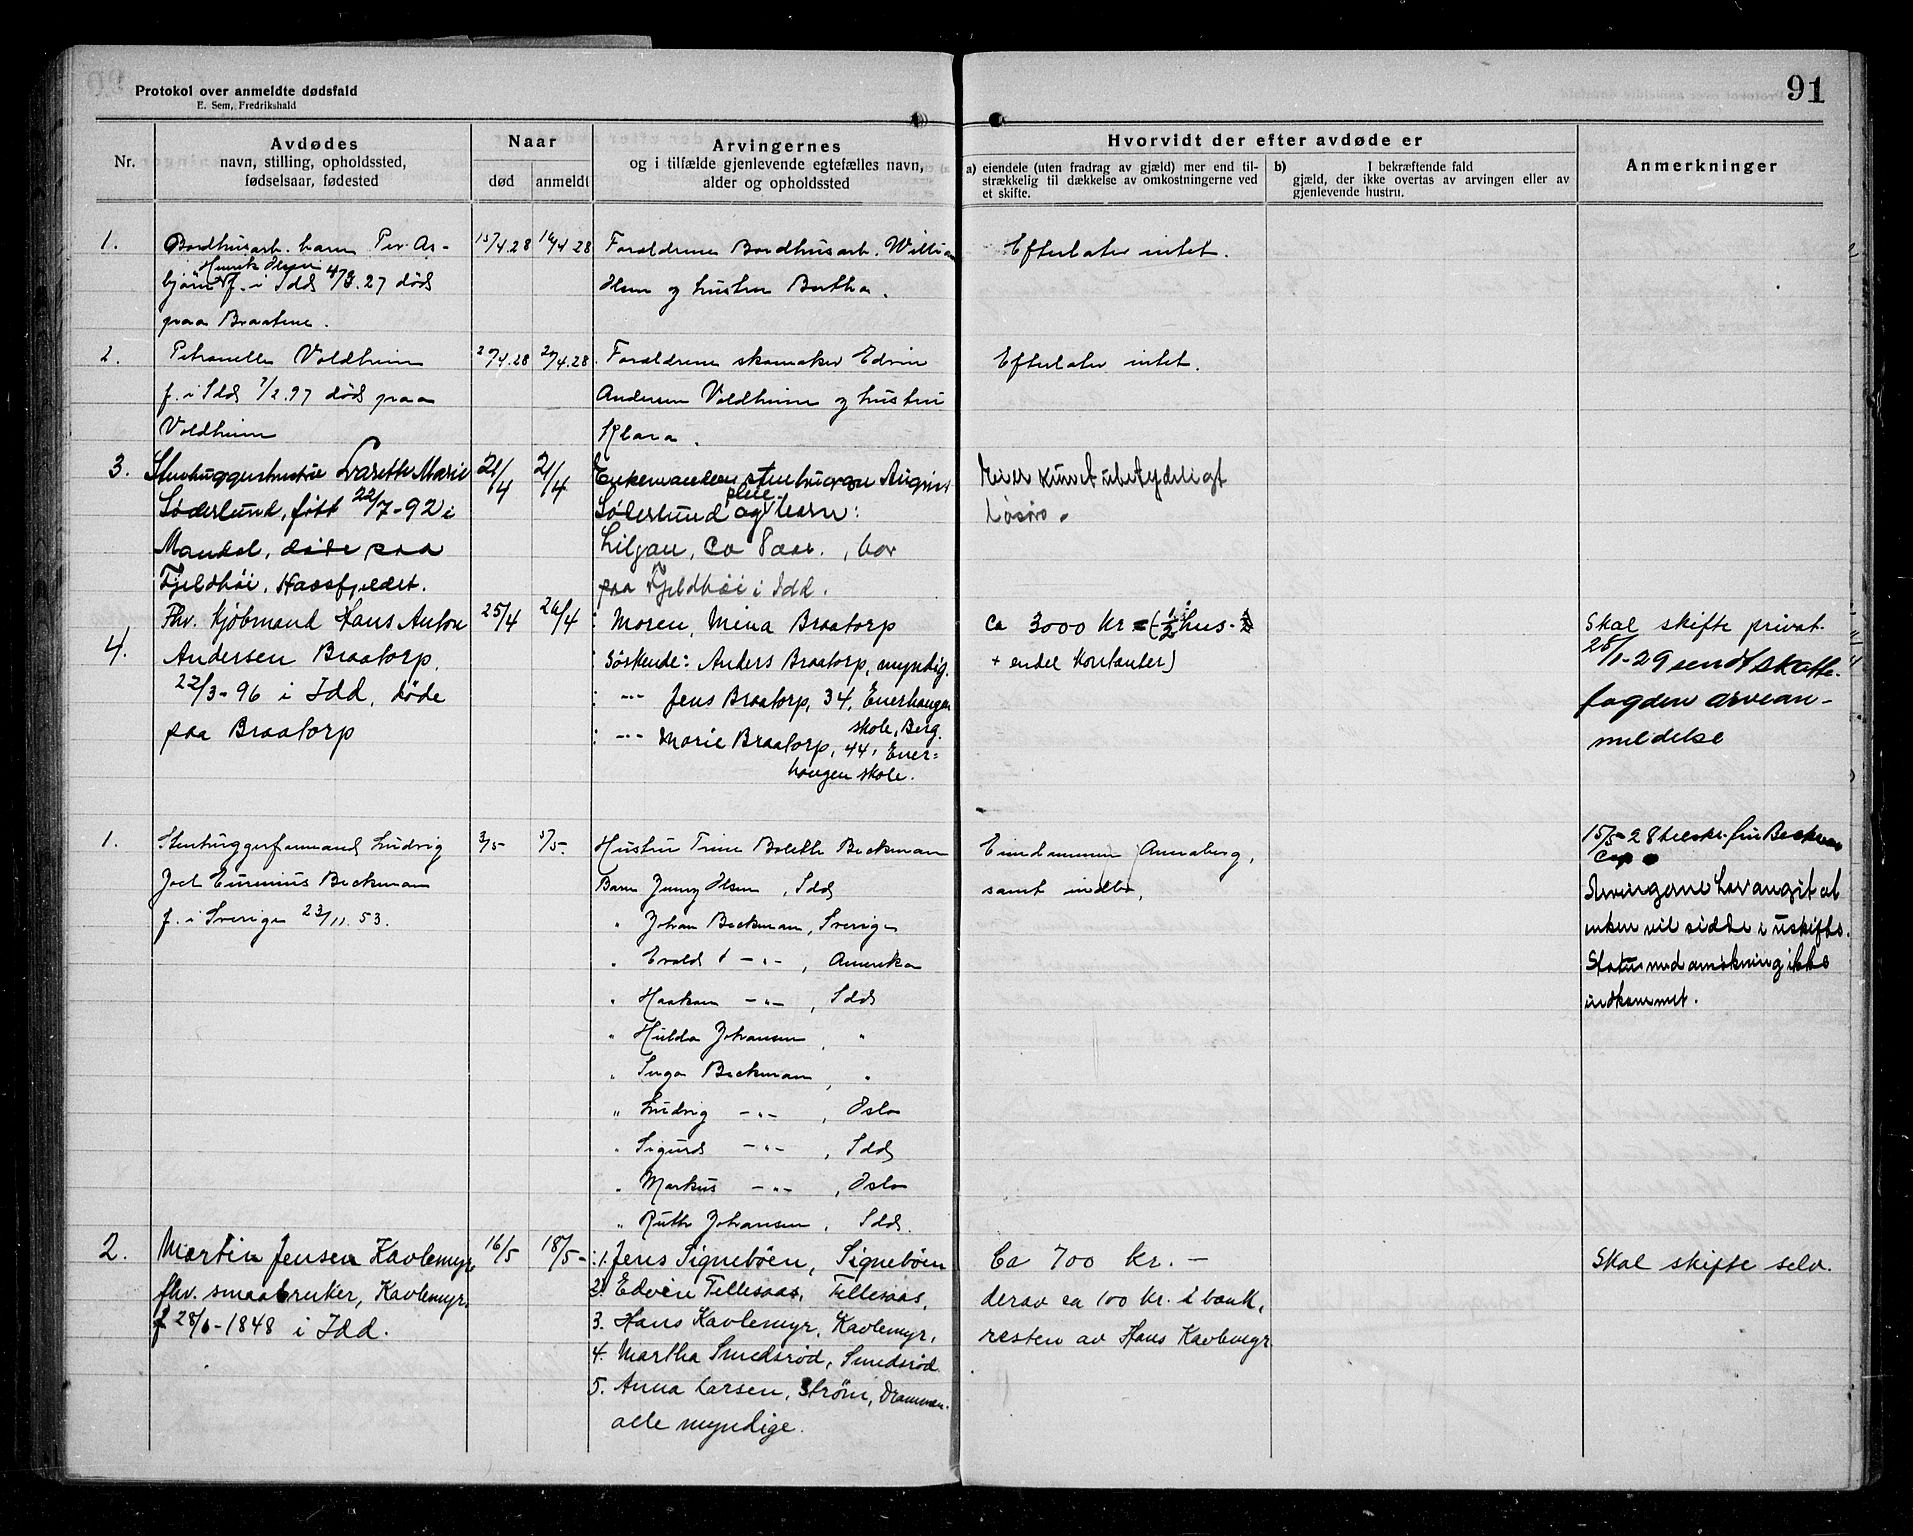 91
Protokol over anmeldte dødsfald
E. Sem, Fredrikshald
Nr.
Avdødes
navn, stilling, opholdssted,
fødselsaar, fødested
Naar
død
anmeldt
Arvingernes
og i tilfælde gjenlevende egtefælles navn,
alder og opholdssted
Hvorvidt der efter avdøde er
a) eiendele (uten fradrag av gjæld) mer end til-
strækkelig til dækkelse av omkostningerne ved
et skifte.
b) I bekræftende fald
gjæld, der ikke overtas av arvingen eller av
gjenlevende hustru.
Anmerkninger
1.
Bordhusarb. barn Per As-
Henrik Olsen
bjørn f. i Idd 4/3.27 død
paa Braatene.
15/4.28
16/4 28
Forældrene Bordhusarb. William
Olsen og hustru Bertha.
Efterlater intet.
2.
Petronelle Voldheim
f. i Idd 7/2.97 død paa
Voldheim
20/4.28
20/4.28
Forældrene skomaker Edvin
Andersen Voldheim og hustru
Klara.
Efterlater intet.
3.
Stenhuggerhustru Lareth Marie
Søderlund, født 22/7-92 i
Mandal, døde paa
Fjeldhøi, Haasfjeldet.
21/4
21/4
Enkemanden stenhugger August
pleie
Søderlund og barn:
Liljan, ca 8 aar., bor
paa Fjeldhøi i Idd.
Eier kun et ubetydeligt
løsøre.
4.
Fhv. kjøbmand Hans Anton
Andersen Braatorp.
22/3-96 i Idd, døde
paa Braatorp
25/4
26/4
Moren, Mina Braatorp
Søskende: Anders Braatorp, myndig.
: -"- Jens Braatorp, 34, Enerhaugen
skole, Berg.
: -"- Marie Braatorp, 44, Ener=
haugen skole.
ca 3000 kr = (1/2 hus-
+ endel kontanter)
Skal skifte privat.
28/1-29 sendt skatte-
fogden arvean-
meldelse
1.
Stenhuggerformand Ludvig
Joel Beckman
f. i Sverige 23/11.53.
3/5
5/5.
Hustru Trine Boleth Beckman
Barn Jenny Olsen, Idd
" Johan Beckman, Sverige
" Evald -"-, Amerika
" Haakon -"-, Idd
" Hulda Johansen, "
" Inga Beckman, "
" Ludvig -"-, Oslo
" Sigurd -"-, Idd
" Markus -"-, Oslo
" Ruth Johansen, Idd.
Eiendommen Annaberg,
samt indbo,
15/5-28 tilskr. fru Beckman
Arvingerne har angit at
enken vil sidde i uskifte.
Status med ansøkning ikke
indkommet.
2.
Martin Jensen Kavlemyr
fhv. smaabruker, Kavlemyr.
f 28/6-1848 i Idd.
16/5
18/5-
1. Jens Signebøen, Signebøen
2. Edvin Tillesaas, Tillesaas,
3. Hans Kavlemyr, Kavlemyr,
4. Martha Smedsrød, Smedsrød
5. Anna Larsen, Strøm, Drammen.
alle myndige.
Ca 700 kr. -
derav ca 100 kr. i bank,
resten av Hans Kavlemyr
Skal skifte selv.